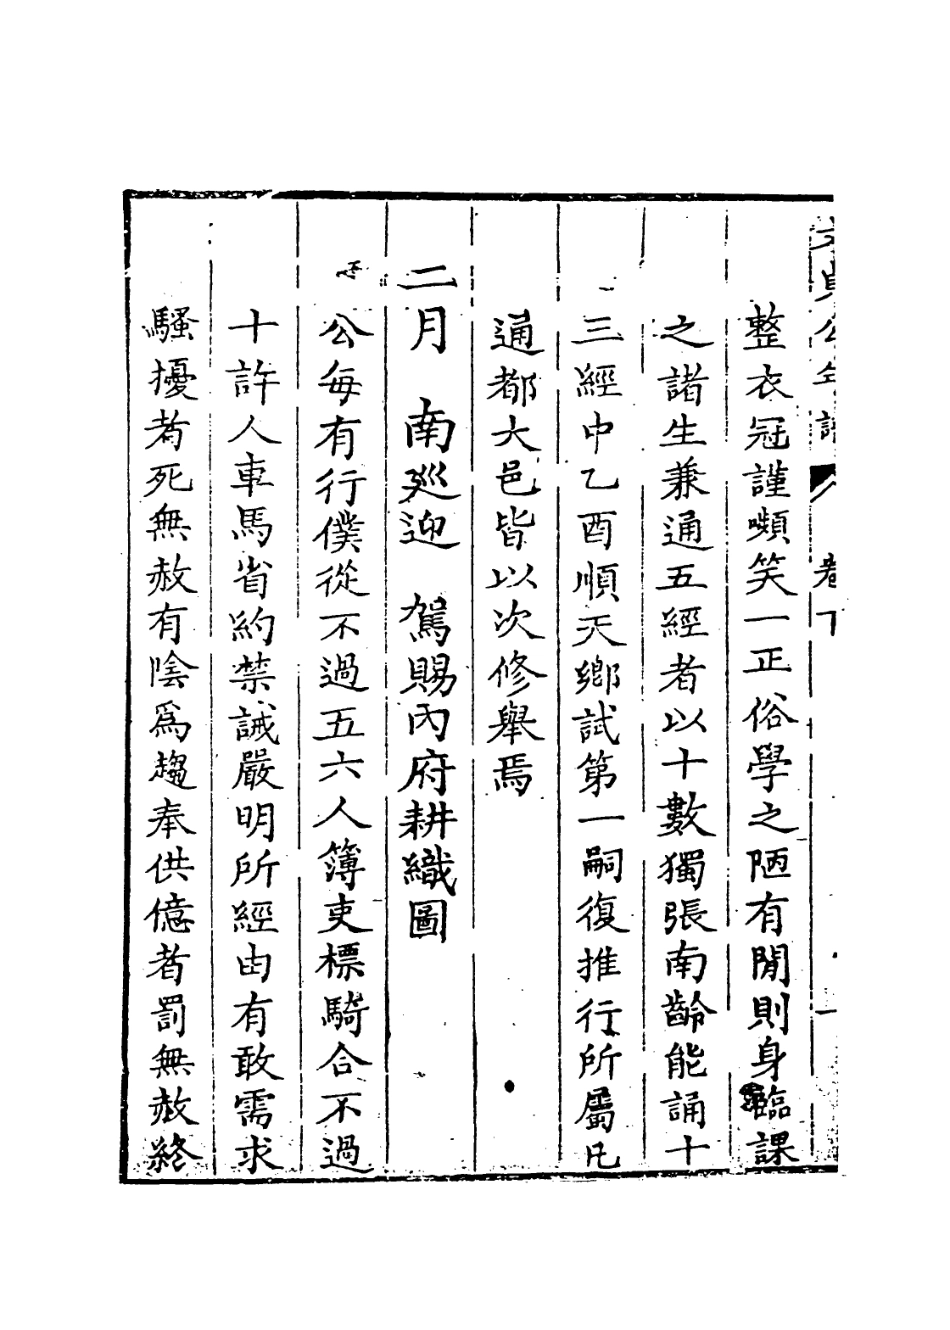 文貞公年譜 卷下 一
整衣冠謹嚬笑一正俗學之陋有閒則身臨課
之諸生兼通五經者以十數獨張南齡能誦十
三經中乙酉順天鄉試第一嗣復推行所屬凡
通都大邑皆以次修舉焉
二月 南廵迎 駕賜內府耕織圖
公每有行僕從不過五六人簿吏標騎合不過
十許人車馬省約禁誡嚴明所經由有敢需求
騷擾者死無赦有陰爲趨奉供億者罰無赦終